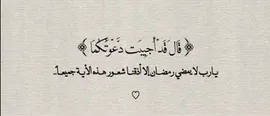 ﴿ قَالَ قَدْ أُجِيبَت دَّعْوَتُكُمَا ﴾
يارب لا يمضي رمضان إلا أذقنا شعور هذه الآية جميعاً.